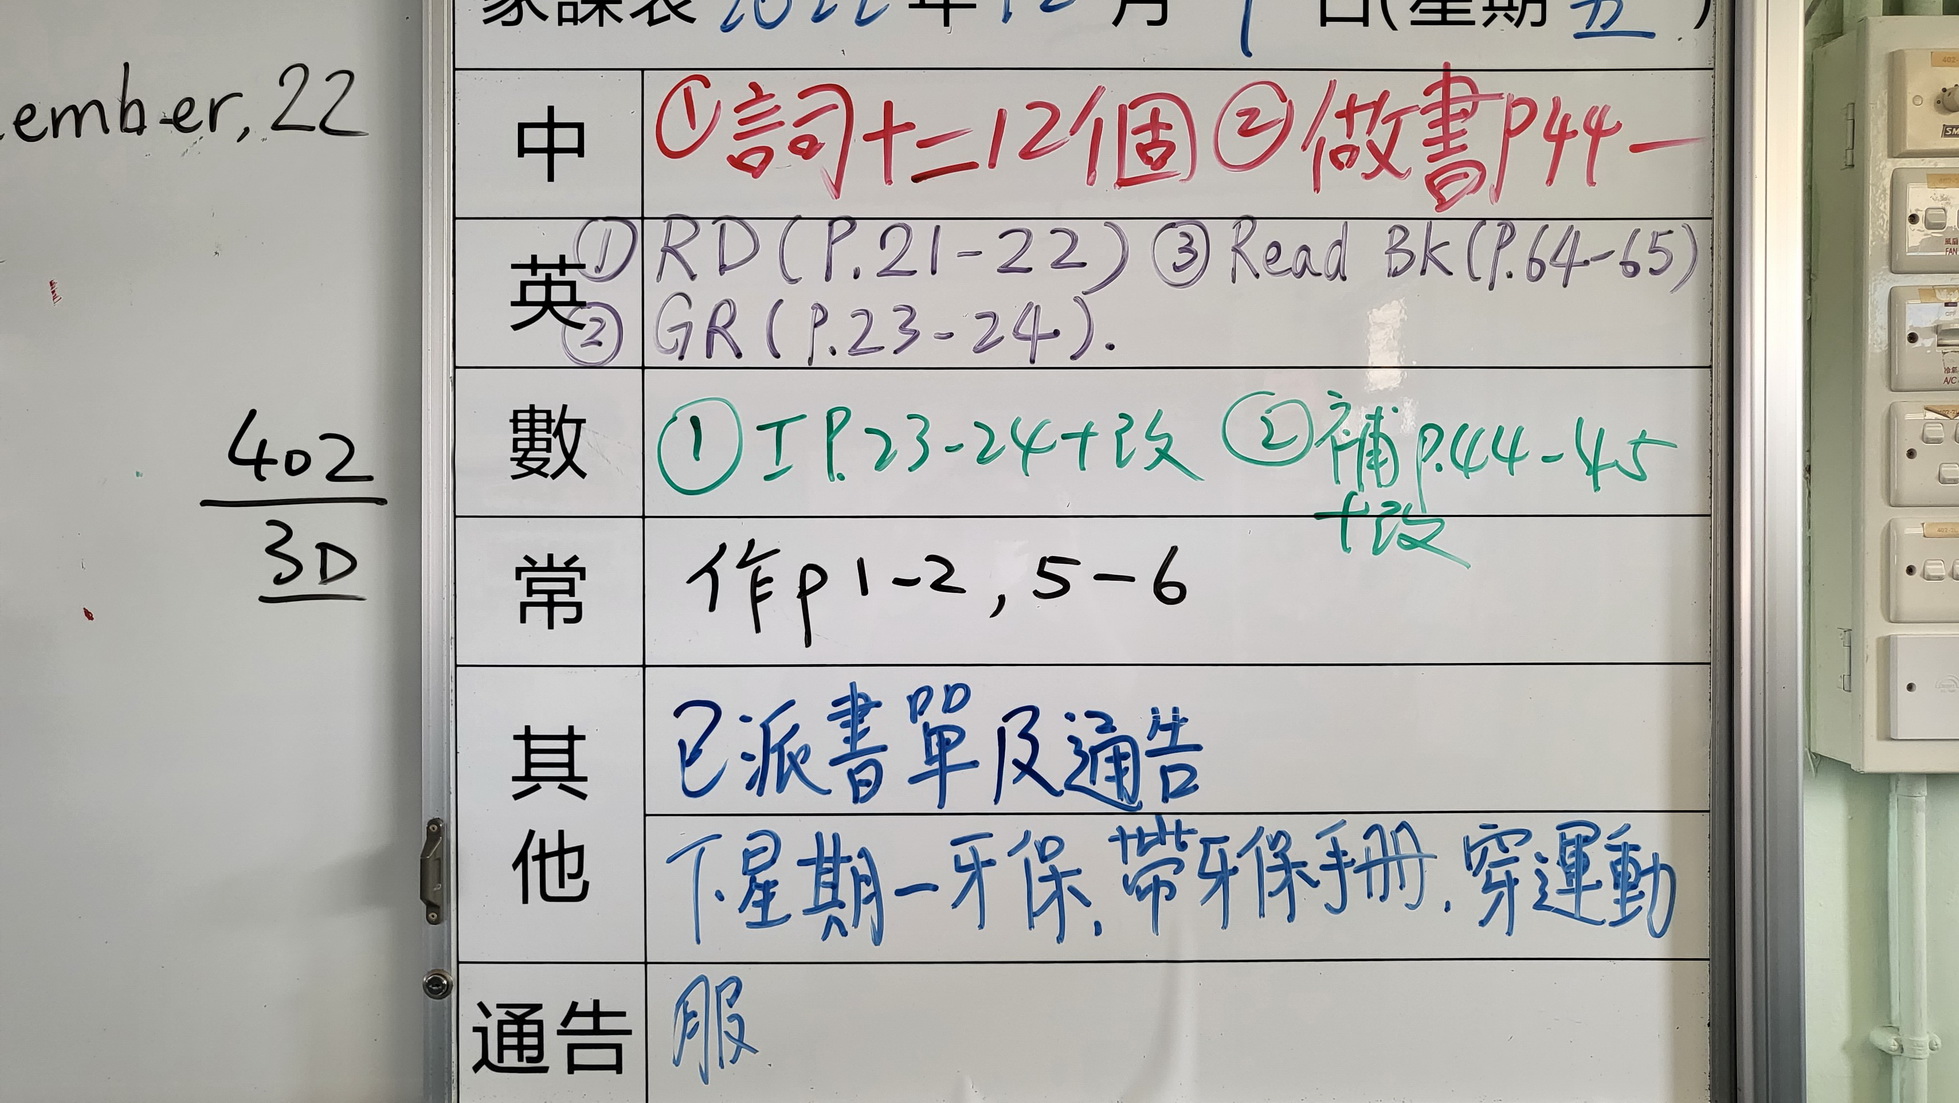 家課表 2022 年 12 月 9 日(星期 五 )
ember, 22
中 ①詞十二12個 ②做書P44—
英 ① RD (P.21-22) ③ Read BK (P.64-65)
② GR (P.23-24).
數 ① 工 P.23-24+改 ② 補 p.44-45
+改
402
3D
常 作 p 1-2, 5-6
其他 已派書單及通告
下星期一牙保, 帶牙保手冊, 穿運動
通告 服